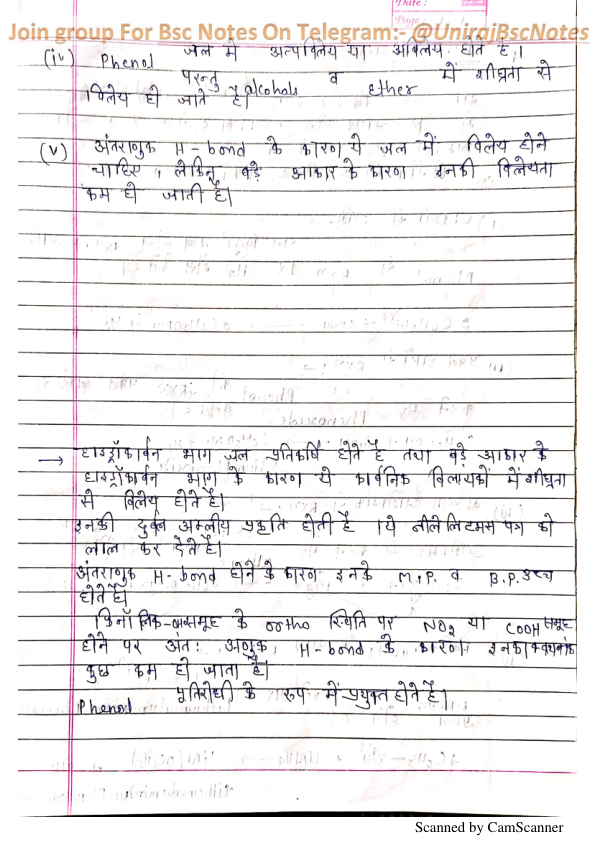 Date :
Page
Join group For Bsc Notes On Telegram:- @UnirajBscNotes
(iv) Phenol जल में अल्पविलेय या अविलेय होते है।
परन्तु alcohols व ether में शीघ्रता से
विलेय हो जाते है।
(v) अंतराणुक H-bond के कारण ये जल में विलेय होने
चाहिए, लेकिन बड़े आकार के कारण इनकी विलेयता
कम हो जाती है।
→ हाइड्रॉकार्बन भाग जल प्रतिकर्षि होते है तथा बड़े आकार के
हाइड्रॉकार्बन भाग के कारण ये कार्बनिक विलायकों में शीघ्रता
से विलेय होते है।
इनकी दुर्बल अम्लीय प्रकृति होती है। ये नीले लिटमस पत्र को
लाल कर देते है।
अंतराणुक H-bond होने के कारण इनके M.P. व B.P. उच्च
होते है।
फिनॉलिक समूह के ortho स्थिति पर NO₂ या COOH समूह
होने पर अंतः अणुक H-bond के कारण इनका क्वथनांक
कुछ कम हो जाता है।
Phenol पूतिरोधी के रूप में प्रयुक्त होते है।
Scanned by CamScanner